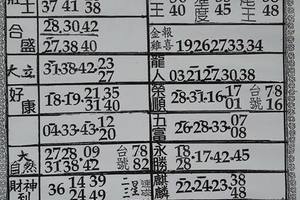 士 37 41 38
40 度 45 王 40 48
合盛 28.30.42
27.38.40
金報雞喜 19 26 27 33.34
大立 31.38.42.23 27
龍人 03 21.27.30.38
好康 18.19.21 35 31 40
榮順 28.31.16 17 01 台78 16號
04.33.43.12 20
五富 26.28.33.07 08
大自然 27 28.09 台78
31 38 42 號82
永勝 28.17.42.45
財神 36 14 39
24 49
麒麟 22.24.23 38 48